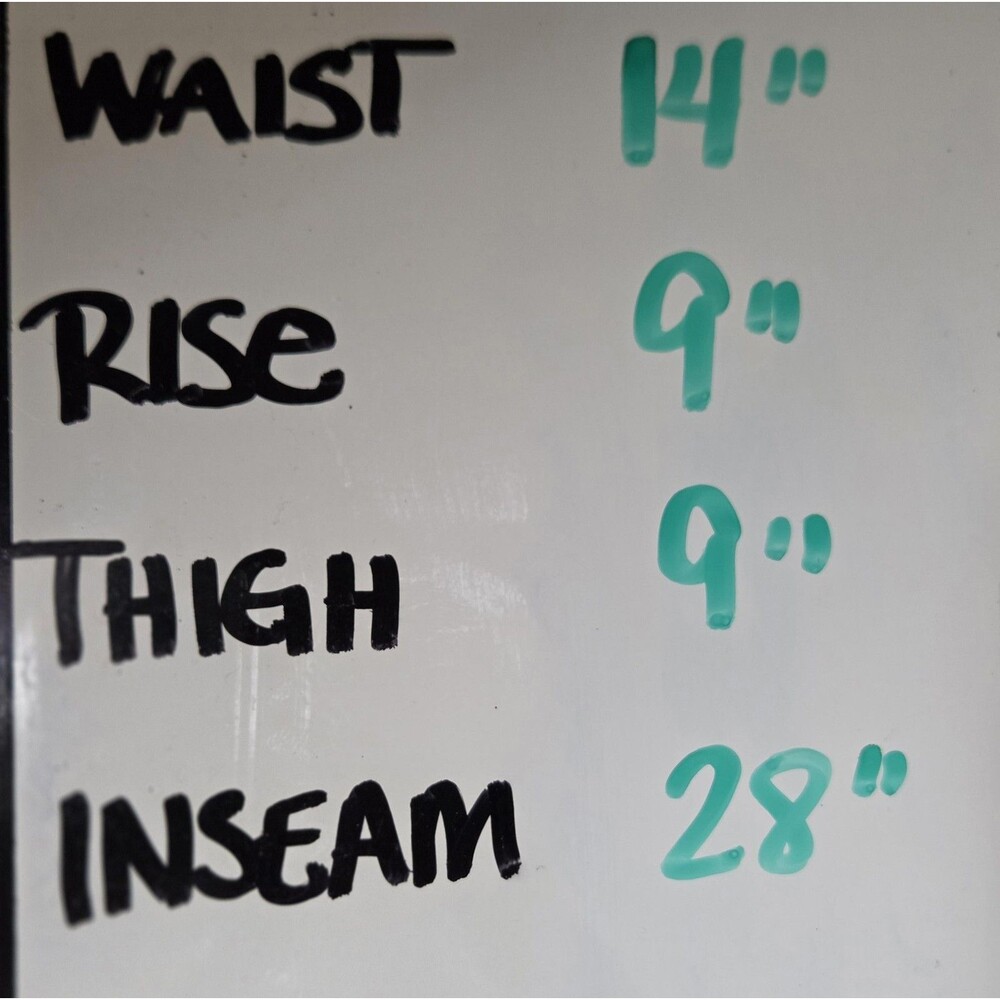 WAIST 14"
RISe 9"
THIGH 9"
INSEAM 28"